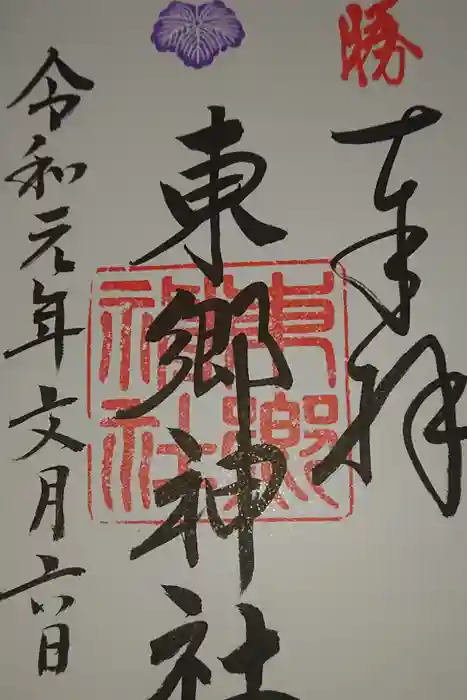 勝
奉拝
東郷神社
東郷神社
令和元年文月六日